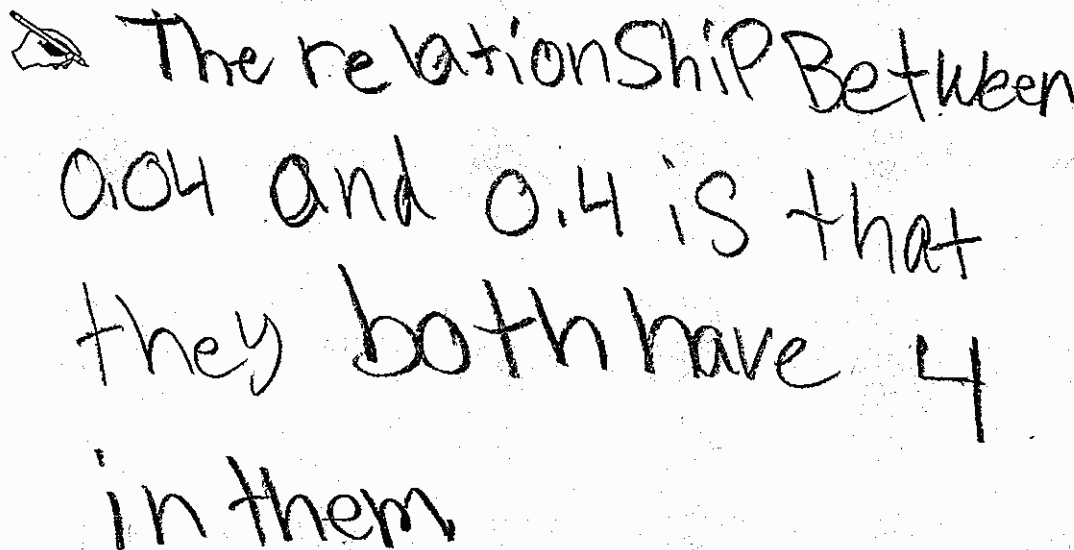 The relationShiP Between
0.04 and 0.4 is that
they both have 4
in them